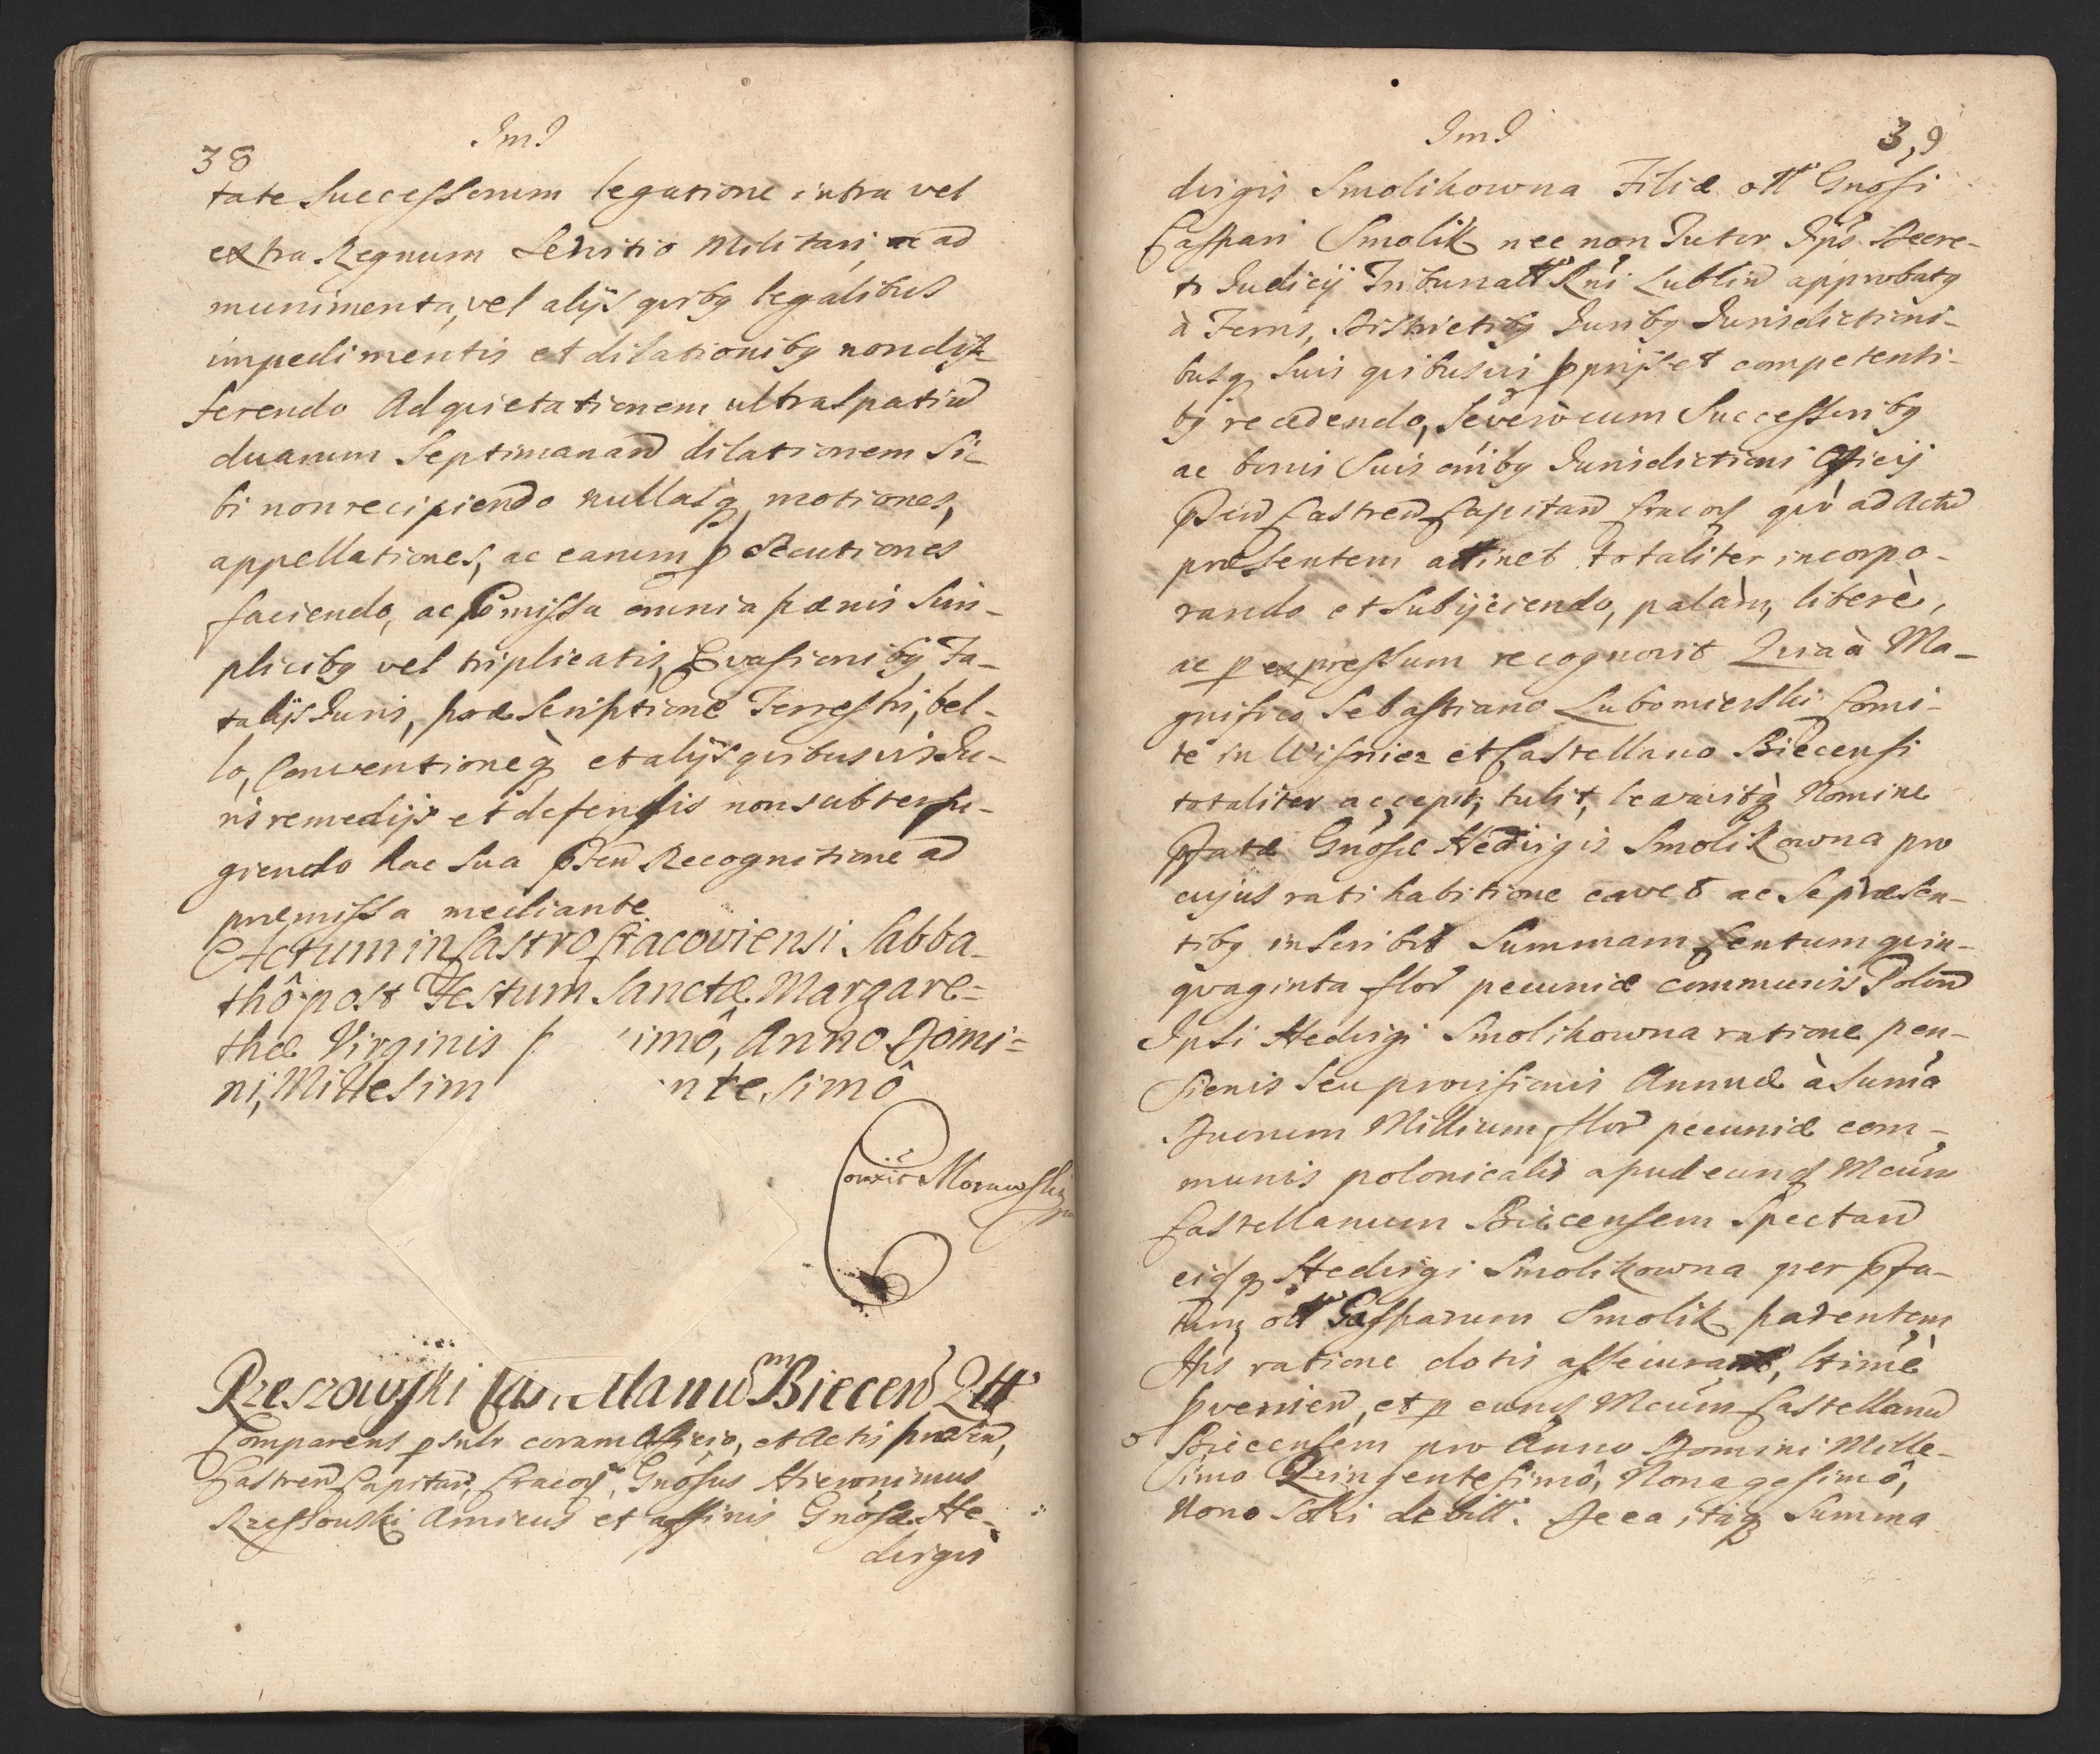 38
JmJ
tate Successorum legatione intra vel
extra Regnum Servitio Militari, ac ad
munimenta, vel alijs quibq legalibus
impedimentis et dilationibq non dif-
ferendo Ad quietationem ultra spatiu
duarum Septimanaru dilationem Si-
bi non recipiendo nullasq motiones,
appellationes, ac earum psecutiones
faciendo, ac pmissa omnia pœnis Sim-
plicibq vel triplicatis, Evasionibq Fa-
talijs Juris, præscriptione Terrestri, bel-
lo, Conventioneq et alijs quibusvis Ju-
ris remedijs et defensis non subterfu-
giendo hac sua psen Recognitione ad
præmissa mediante
Actum in Castro Cracoviensi Sabba-
thô post Festum Sanctæ Margare=
thæ Virginis imô, Anno Domi=
ni, Millesim ntesimô
Correxit Morawski
Rzeszowski Castellanum Biecen Qtt
Comparens psnlr coram Officio, et Actis præsen,
Castren Capitan Cracov, Gnosus Hieronimus
Rzessowski Amicus et affinis Gnosæ He-
dvigis
JmJ
39
dvigis Smolikowna Filiæ olt Gnosi
Caspari Smolik nec non Tutor Jps Decre-
to Judicij Tribunalt Rni Lublin approbatq
à Terris, Districtibq Juribq Jurisdictioni-
busq Suis quibusvis pprijs et competenti-
bq recedendo, Se verò cum Successoribq
ac bonis Suis omibq Jurisdictioni Officij
psen Castren Capitan Cracov quò ad Actu
præsentem attinet totaliter incorpo-
rando et Subijciendo, palàm, liberè,
ac p expressum recognovit Quia à Ma-
gnifico Sebastiano Lubomierski Comi-
te in Wisnicz et Castellano Biecensi
totaliter accepit, tulit, levavitq Nomine
pfatæ Gnosæ Hedvigis Smolikowna pro
cujus rati habitione cavet ac Se præsen-
tibq inscribit Summam Centum quin-
quaginta flor pecuniæ communis Polon
Ipsi Hedvigi Smolikowna ratione pen-
sionis seu provisionis Annuæ à Suma
Duorum Millium flor pecuniæ com-
munis polonicalis apud eund Mcum
Castellanum Biecensem Spectan
eidq Hedvigi Smolikowna per pfa-
tum olt Casparum Smolik parentem
Jps ratione dotis assecurat, ltimè
pvenien, et p eund Mcum Castellanu
Biecensem pro Anno Domini Mille-
simo Quingentesimô, Nonagesimô,
Nono Solvi debitt. De ea itaq Summa